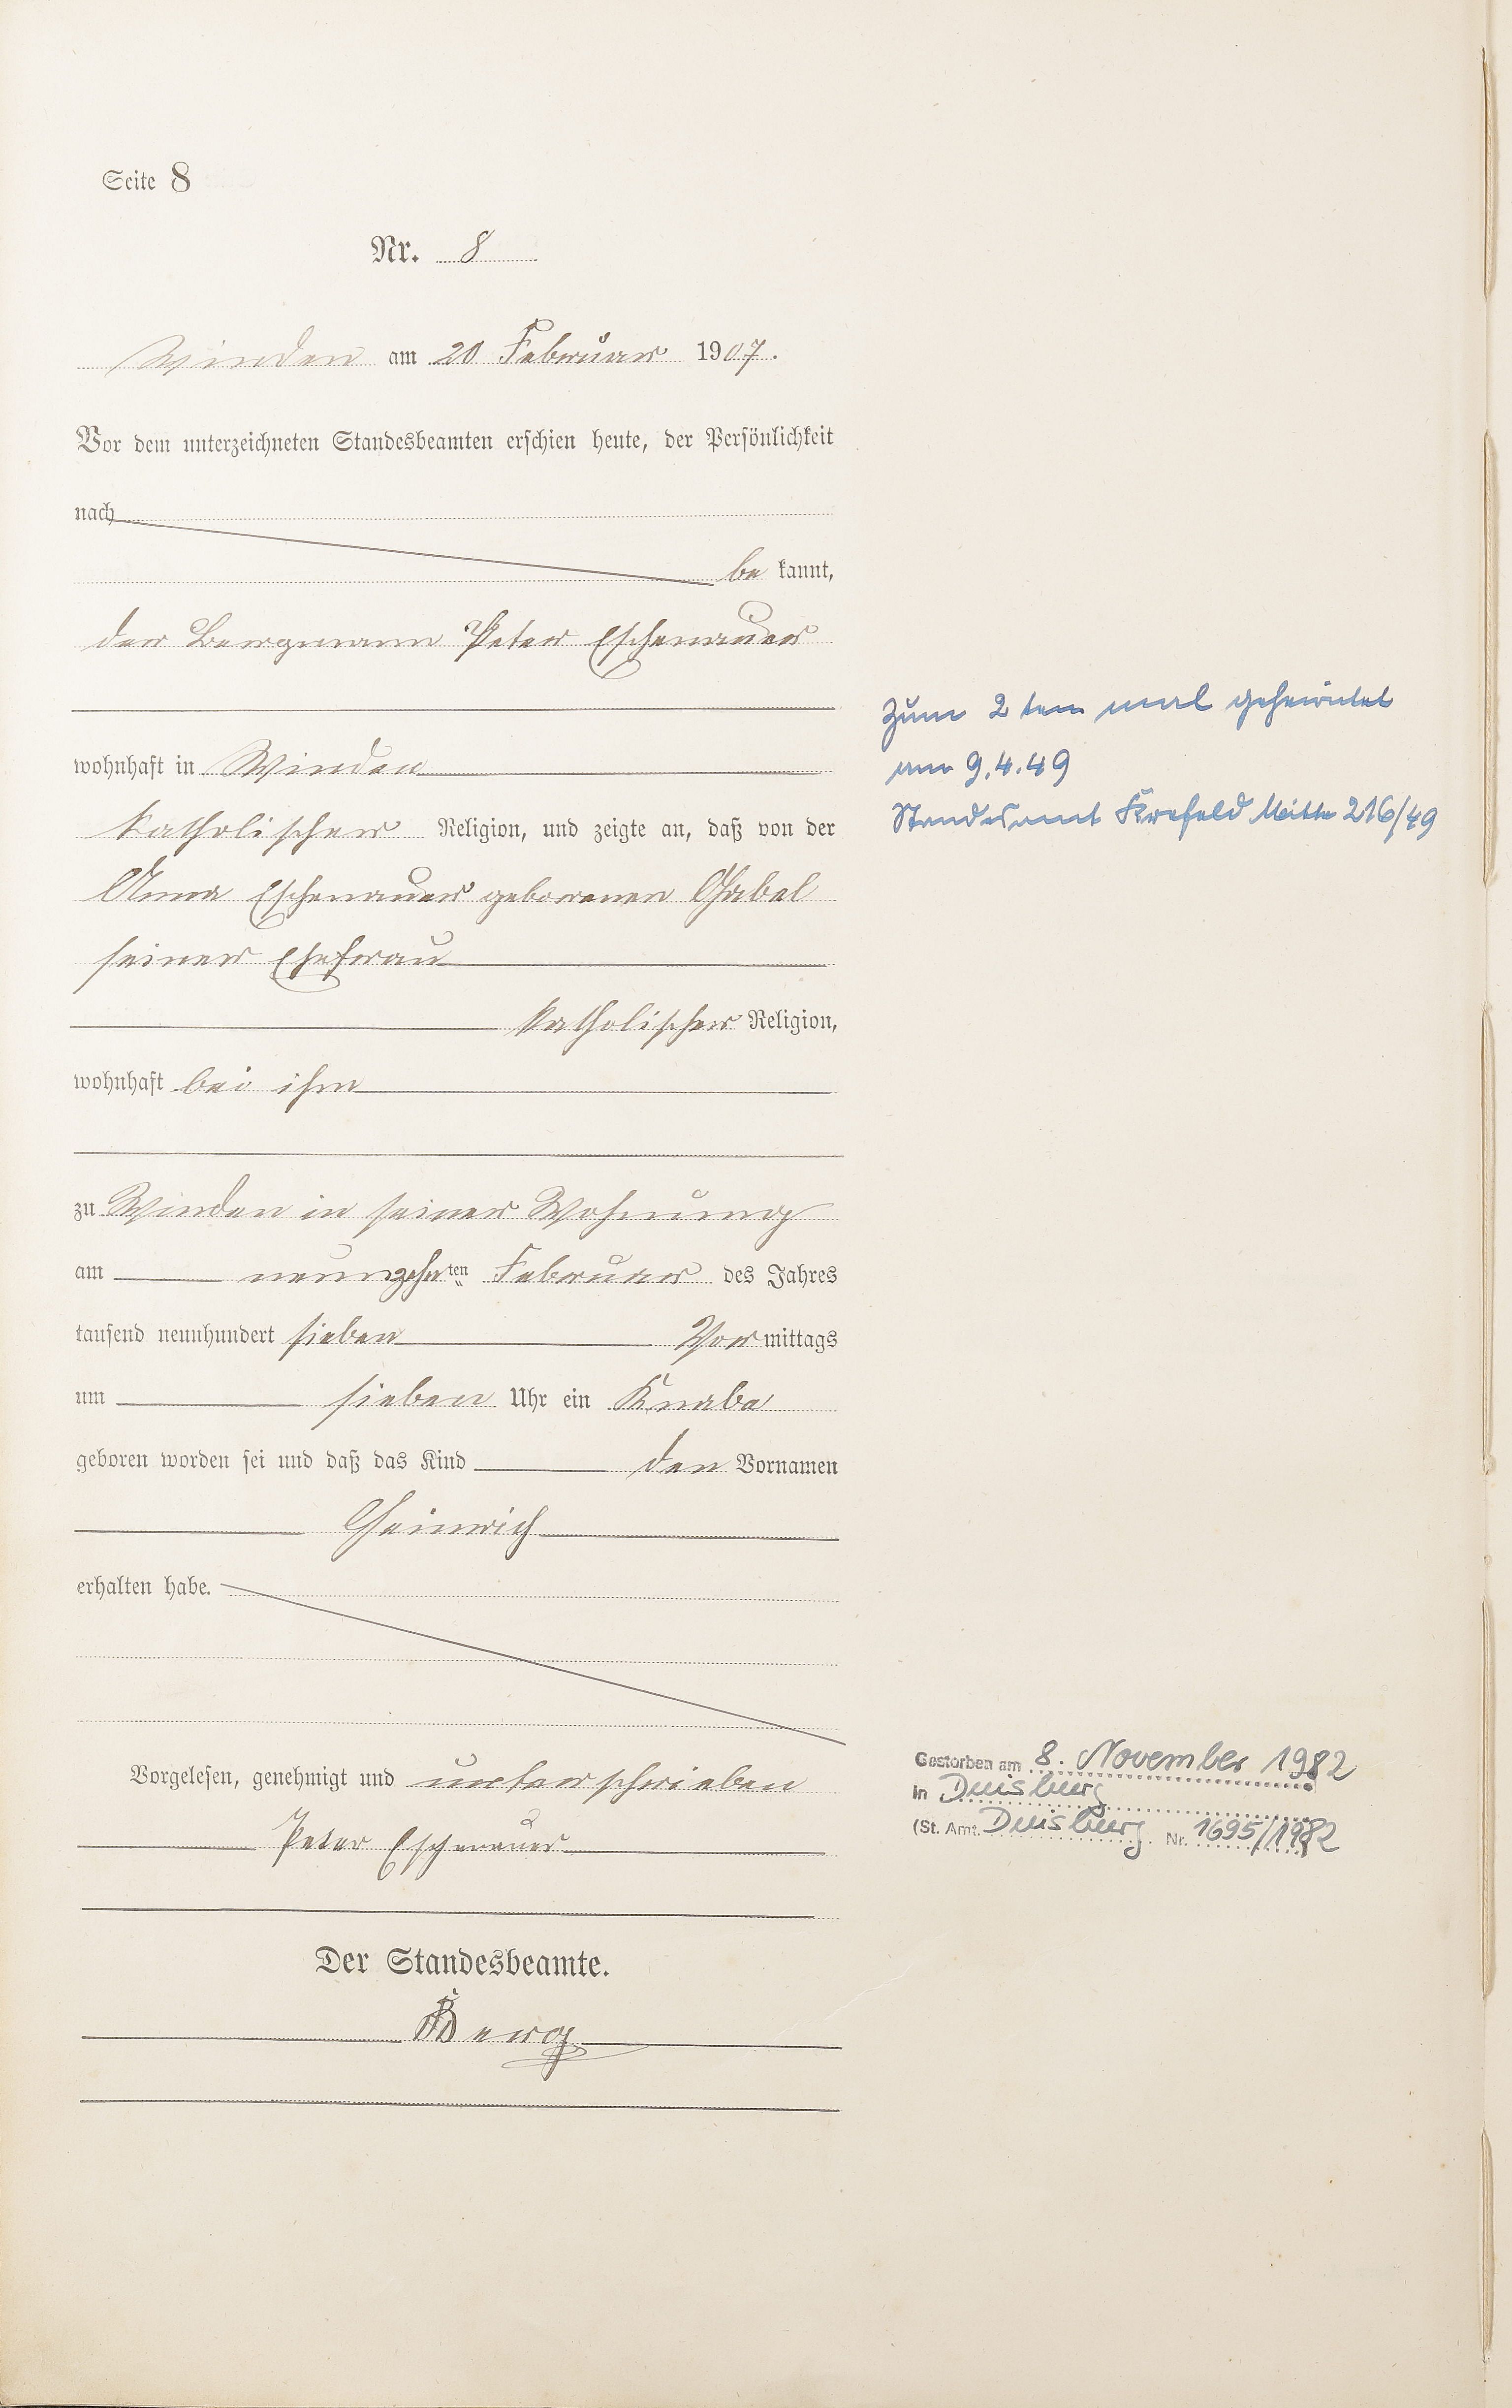 Seite 8
Nr. 8
Winden am 20 Februar 1907.
Vor dem unterzeichneten Standesbeamten erschien heute, der Persönlichkeit
nach
be kannt,
der Bergmann Peter Eschenauer
wohnhaft in Winden
katholischer Religion, und zeigte an, daß von der
Anna Eschenauer geborenen Gabel
seiner Ehefrau
katholischer Religion,
wohnhaft bei ihm
zu Winden in seiner Wohnung
am neunzehnten Februar des Jahres
tausend neunhundert sieben Vormittags
um sieben Uhr ein Knabe
geboren worden sei und daß das Kind den Vornamen
Heinrich
erhalten habe.
Vorgelesen, genehmigt und unterschrieben
Peter Eschenauer
Der Standesbeamte.
Berg
Zum 2 ten mal geheiratet
am 9.4.49
Standesamt Krefeld Mitte 216/49
Gestorben am 8. November 1982
in Duisburg
(St. Amt. Duisburg Nr. 1695/1982